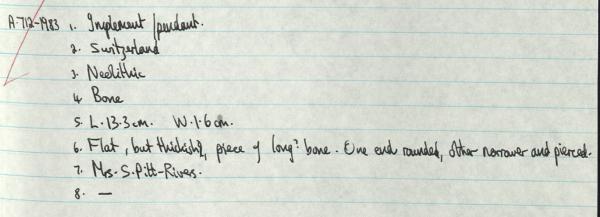 A.712-1983 1. Implement/pendant.
2. Switzerland
3. Neolithic
4. Bone
5. L.13.3cm. W.1.6cm.
6. Flat, but thickish, piece of long? bone. One end rounded, other narrower and pierced.
7. Mrs. S. Pitt-Rivers.
8. —